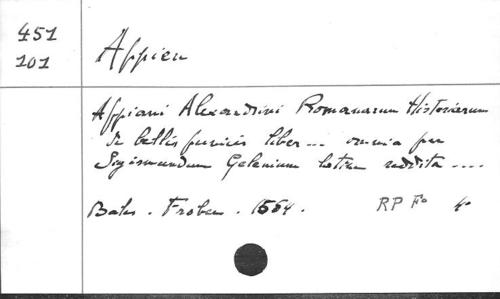 451
101
Appien
Appiani Alexandrini Romanarum Historiarum
de bellis punicis liber... omnia per
Sigismundum Gelenium latine reddita ....
Bales. Froben. 1554. RP F° 4°